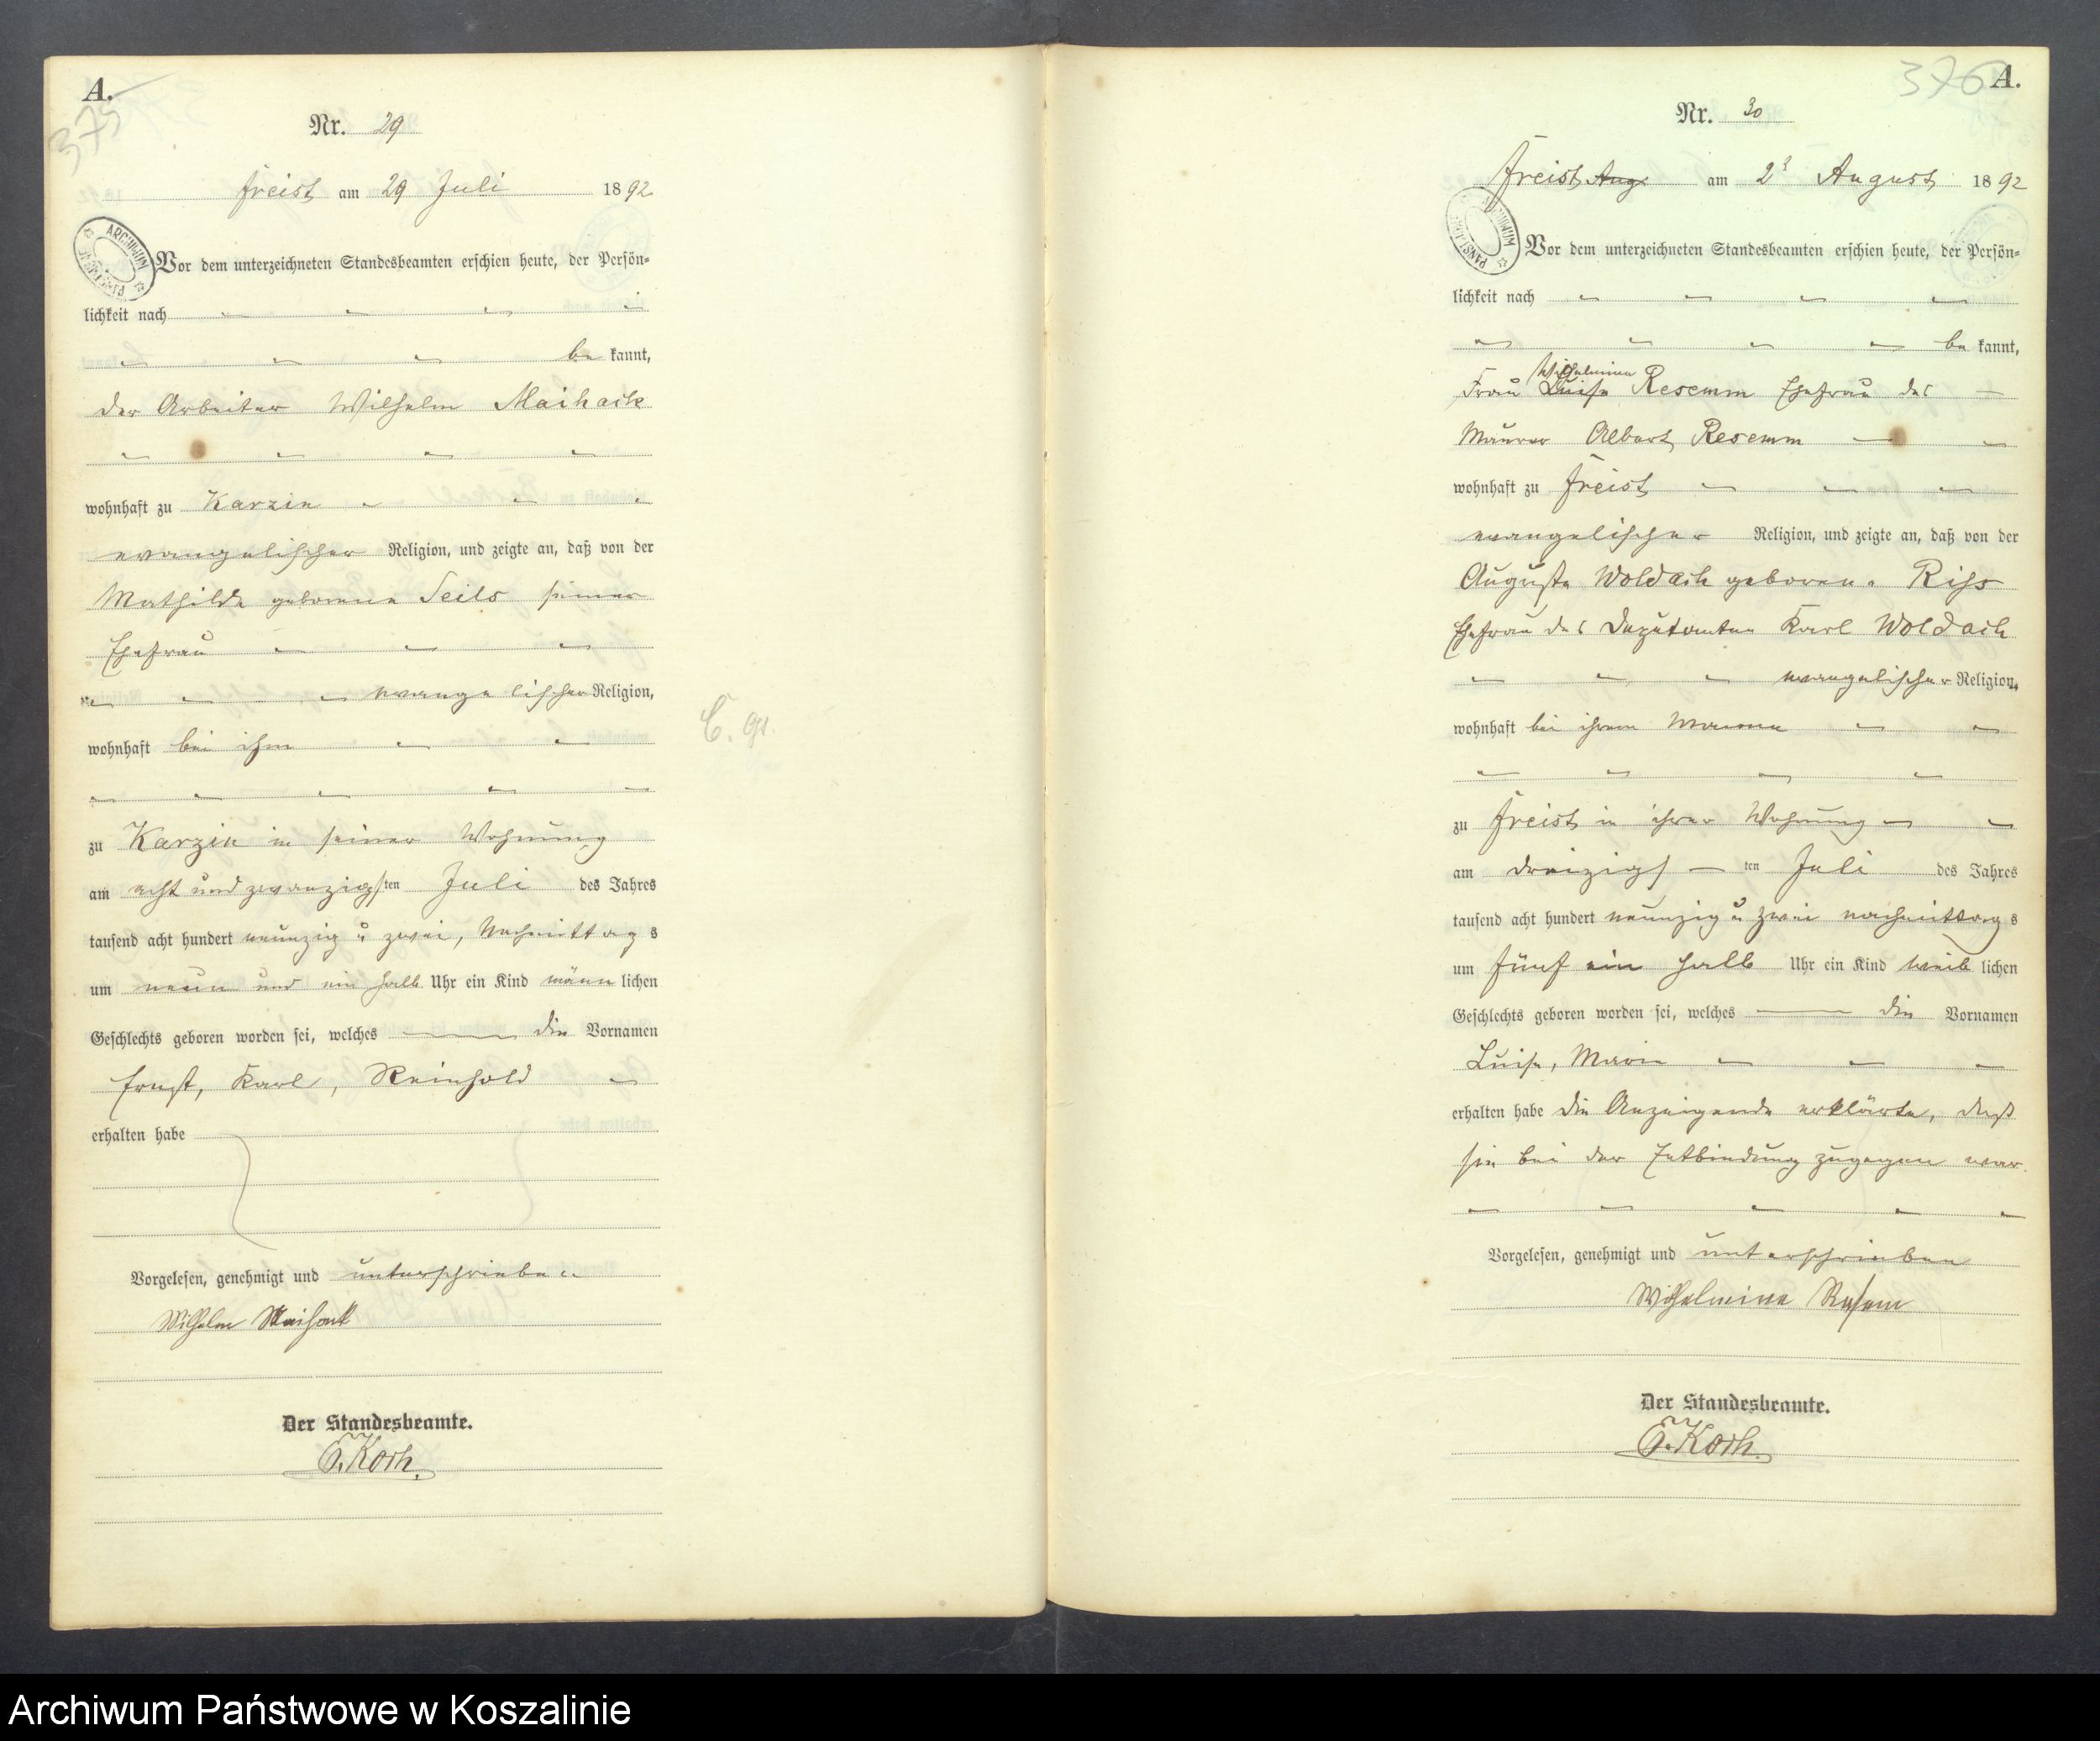 A.
375
Nr. 29
Freist am 29 Juli 1892
ARCHIWUM
Vor dem unterzeichneten Standesbeamten erschien heute, der Persön-
lichkeit nach
be kannt,
der Arbeiter Wilhelm Maihack
wohnhaft zu Karzin
evangelischer Religion, und zeigte an, daß von der
Mathilde geborene Seils seiner
Ehefrau
evangelischer Religion,
wohnhaft bei ihm
zu Karzin in seiner Wohnung
am acht und zwanzigsten Juli des Jahres
tausend acht hundert neunzig u zwei, Nachmittags
um neun und ein halb Uhr ein Kind männlichen
Geschlechts geboren worden sei, welches die Vornamen
Ernst, Karl, Reinhold
erhalten habe
Vorgelesen, genehmigt und unterschrieben
Wilhelm Maihack
Der Standesbeamte.
Koch.
376 A.
Nr. 30
Freist Aug. am 2 August 1892
ARCHIWUM PAŃSTWOWE
Vor dem unterzeichneten Standesbeamten erschien heute, der Persön-
lichkeit nach
be kannt,
Wilhelmine
Frau Luise Resemm Ehefrau des
Maurer Albert Resemm
wohnhaft zu Freist
evangelischer Religion, und zeigte an, daß von der
Auguste Woldach geborene Rihs
Ehefrau des Deputanten Karl Woldach
evangelischer Religion,
wohnhaft bei ihrem Manne
zu Freist in ihrer Wohnung
am dreizigs ten Juli des Jahres
tausend acht hundert neunzig u zwei nachmittags
um fünf ein halb Uhr ein Kind weiblichen
Geschlechts geboren worden sei, welches die Vornamen
Luise, Marie
erhalten habe die Anzeigende erklärte, daß
sie bei der Entbindung zugegen war.
Vorgelesen, genehmigt und unterschrieben
Wilhelmine Resem
Der Standesbeamte.
Koch.
Archiwum Państwowe w Koszalinie